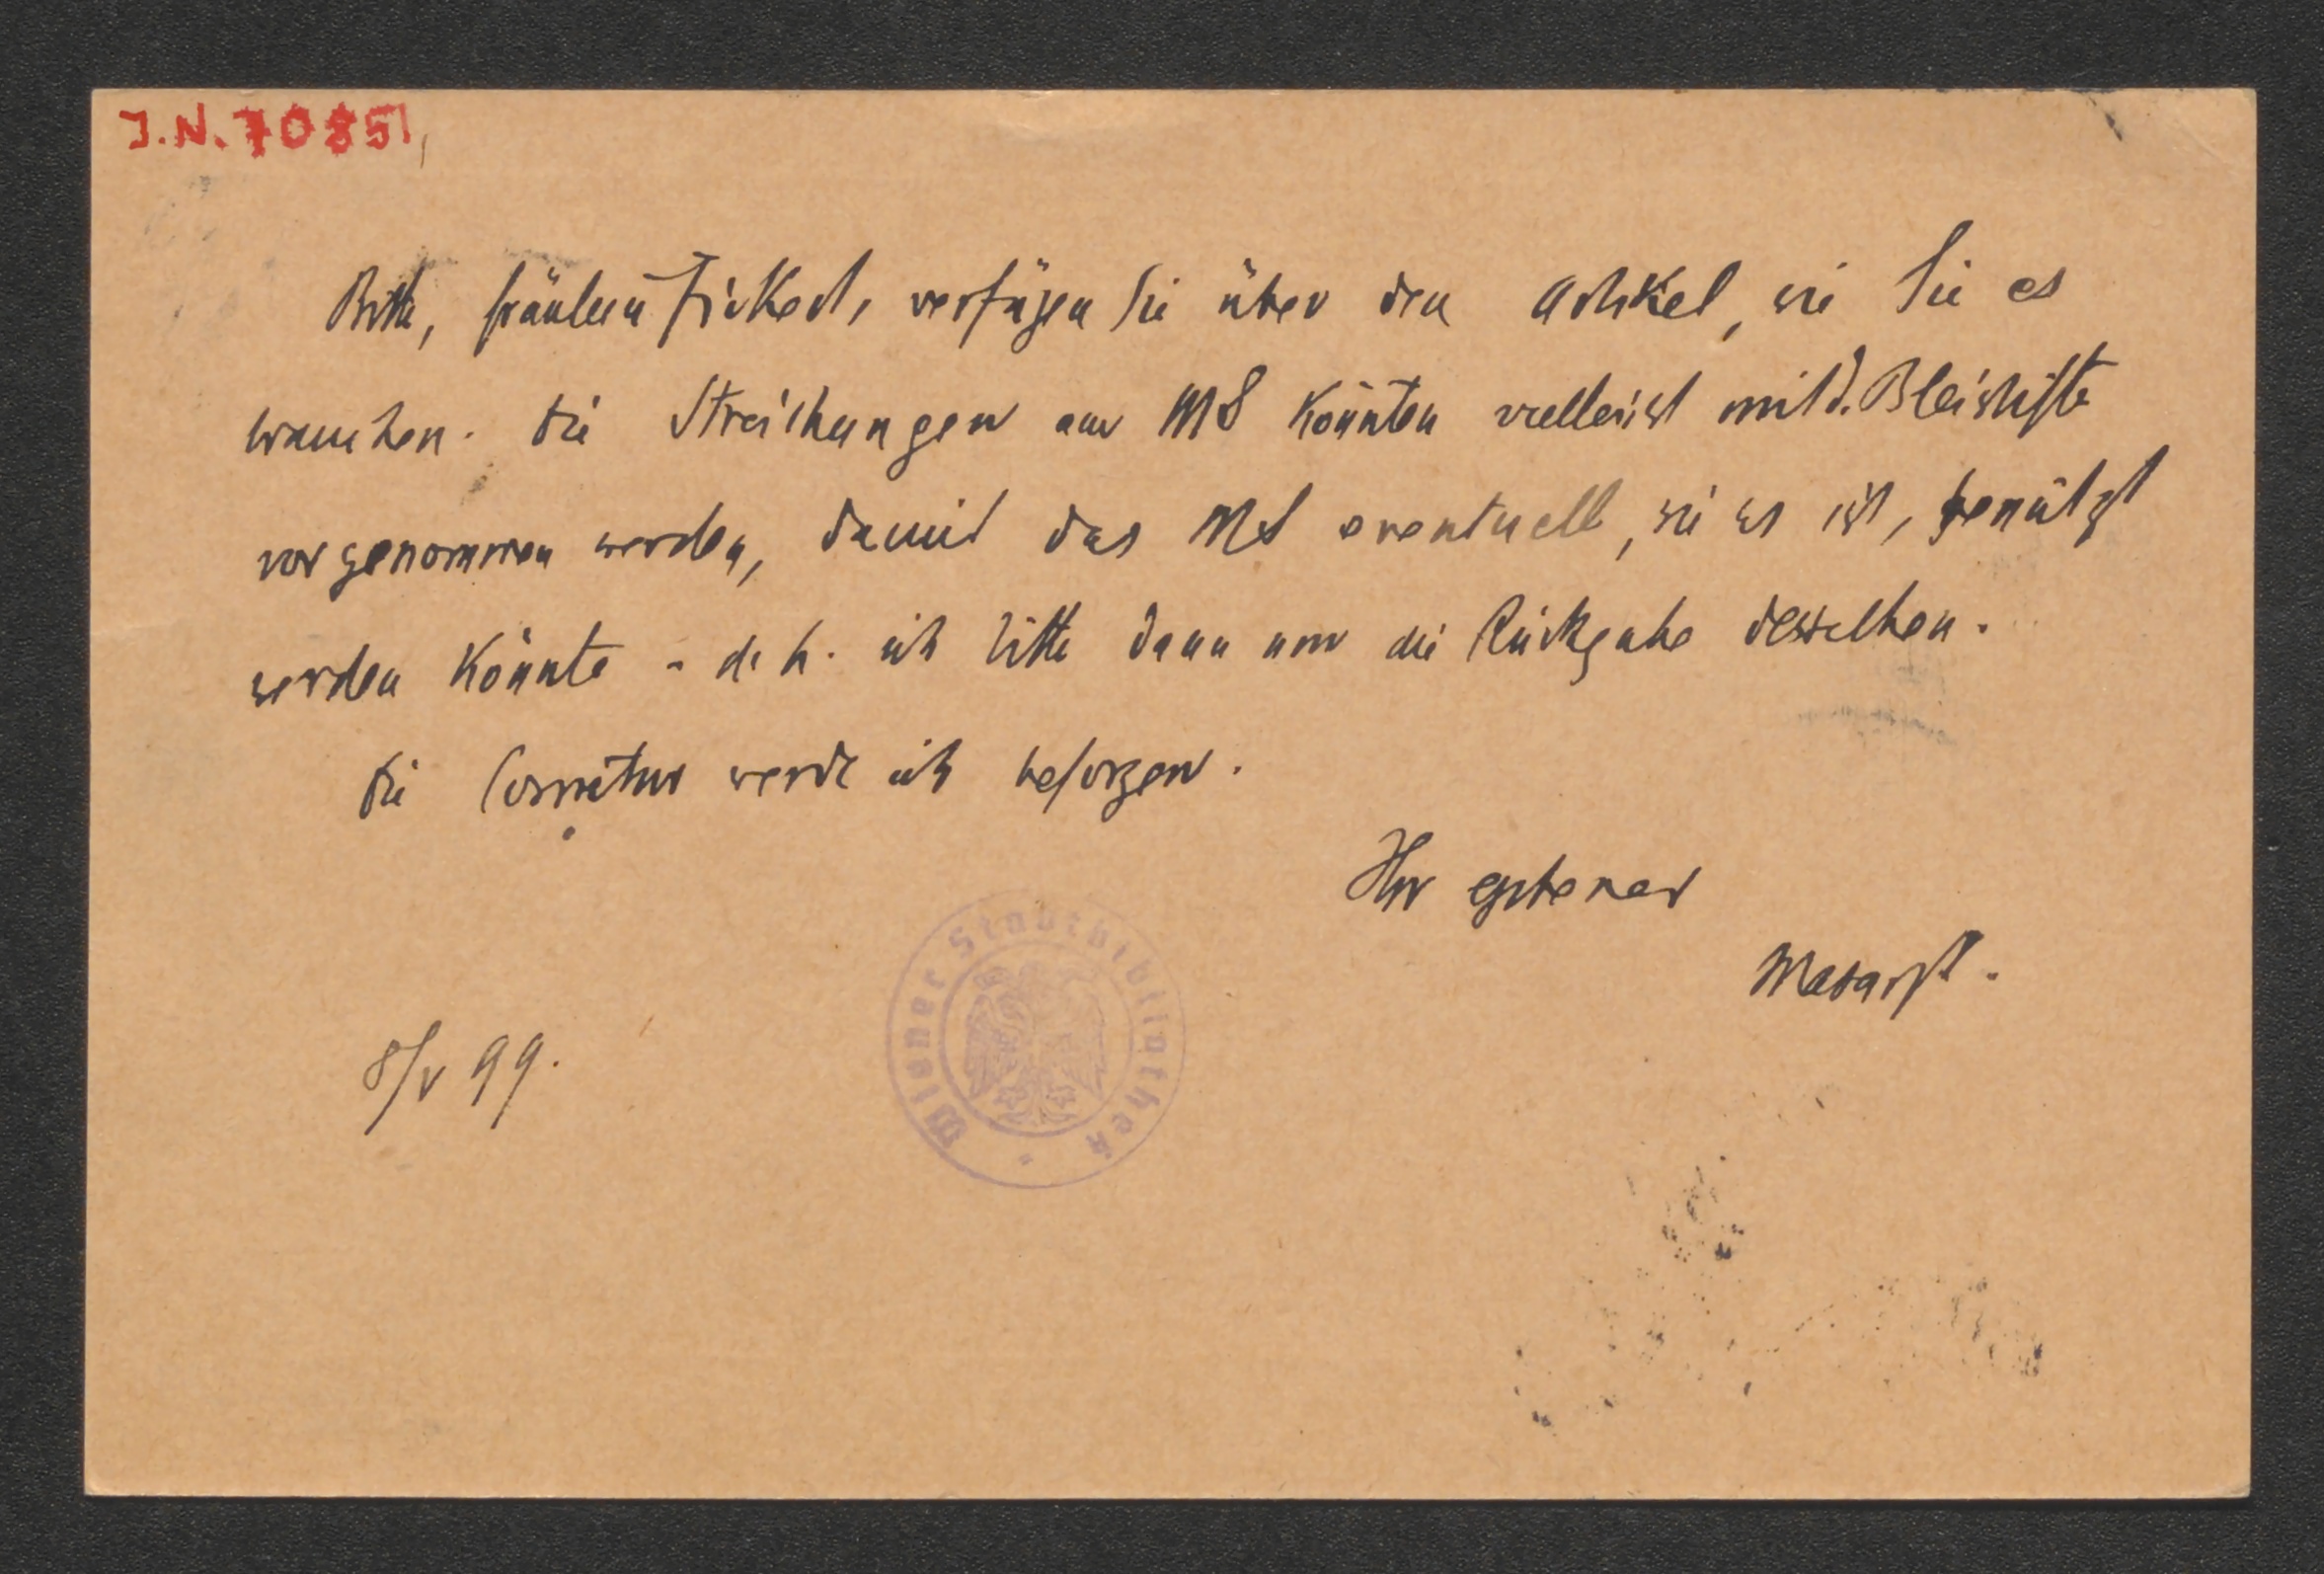 J.N. 70851
Bitte, Fräulein Fickert, verfügen Sie über den Artikel, wie Sie es
brauchen. Die Streichungen am MS könnten vielleicht mit d. Bleistifte
vorgenommen werden, damit das MS eventuell, wie es ist, benützt
werden könnte - d. h. ich bitte dann um die Rückgabe desselben.
Die Correctur werde ich besorgen.
Ihr ergebener
Masaryk.
8/V 99.
Wiener Stadtbibliothek